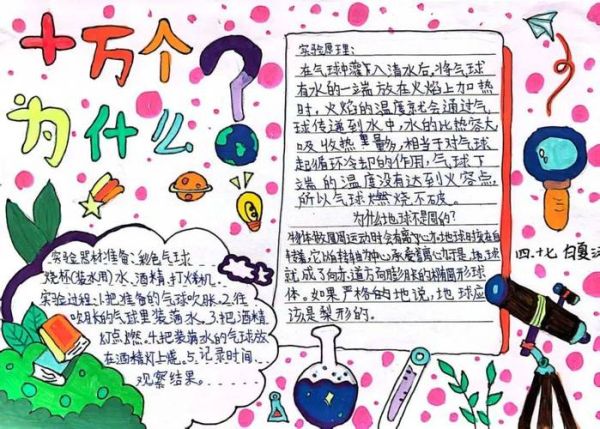 十万个
为什么?
实验原理:
在气球中灌入清水后,将气球
有水的一端放在火焰上加热
时,火焰的温度就会通过气
球传递到水中,水的比热容大
吸收热量多,相当于对气球
起循环冷却的作用,气球下
端的温度没有达到火容点,
所以气球燃烧不破。
为什么地球不是圆的?
物体做圆周运动时会有离心力,地球时
就成了向赤道方向膨胀的椭圆形球
体。如果严格的地说,地球应
该是梨形的.
四.十七 白夏
实验器材准备:彩色气球
烧杯(装水用)水、酒精、打火机.
实验过程:1.把准备的气球吹胀.2.往
吹胀的气球里装满水.3.把酒精
灯点燃.4.把装满水的气球放
在酒精灯上烧.5.记录时间.
观察结果。